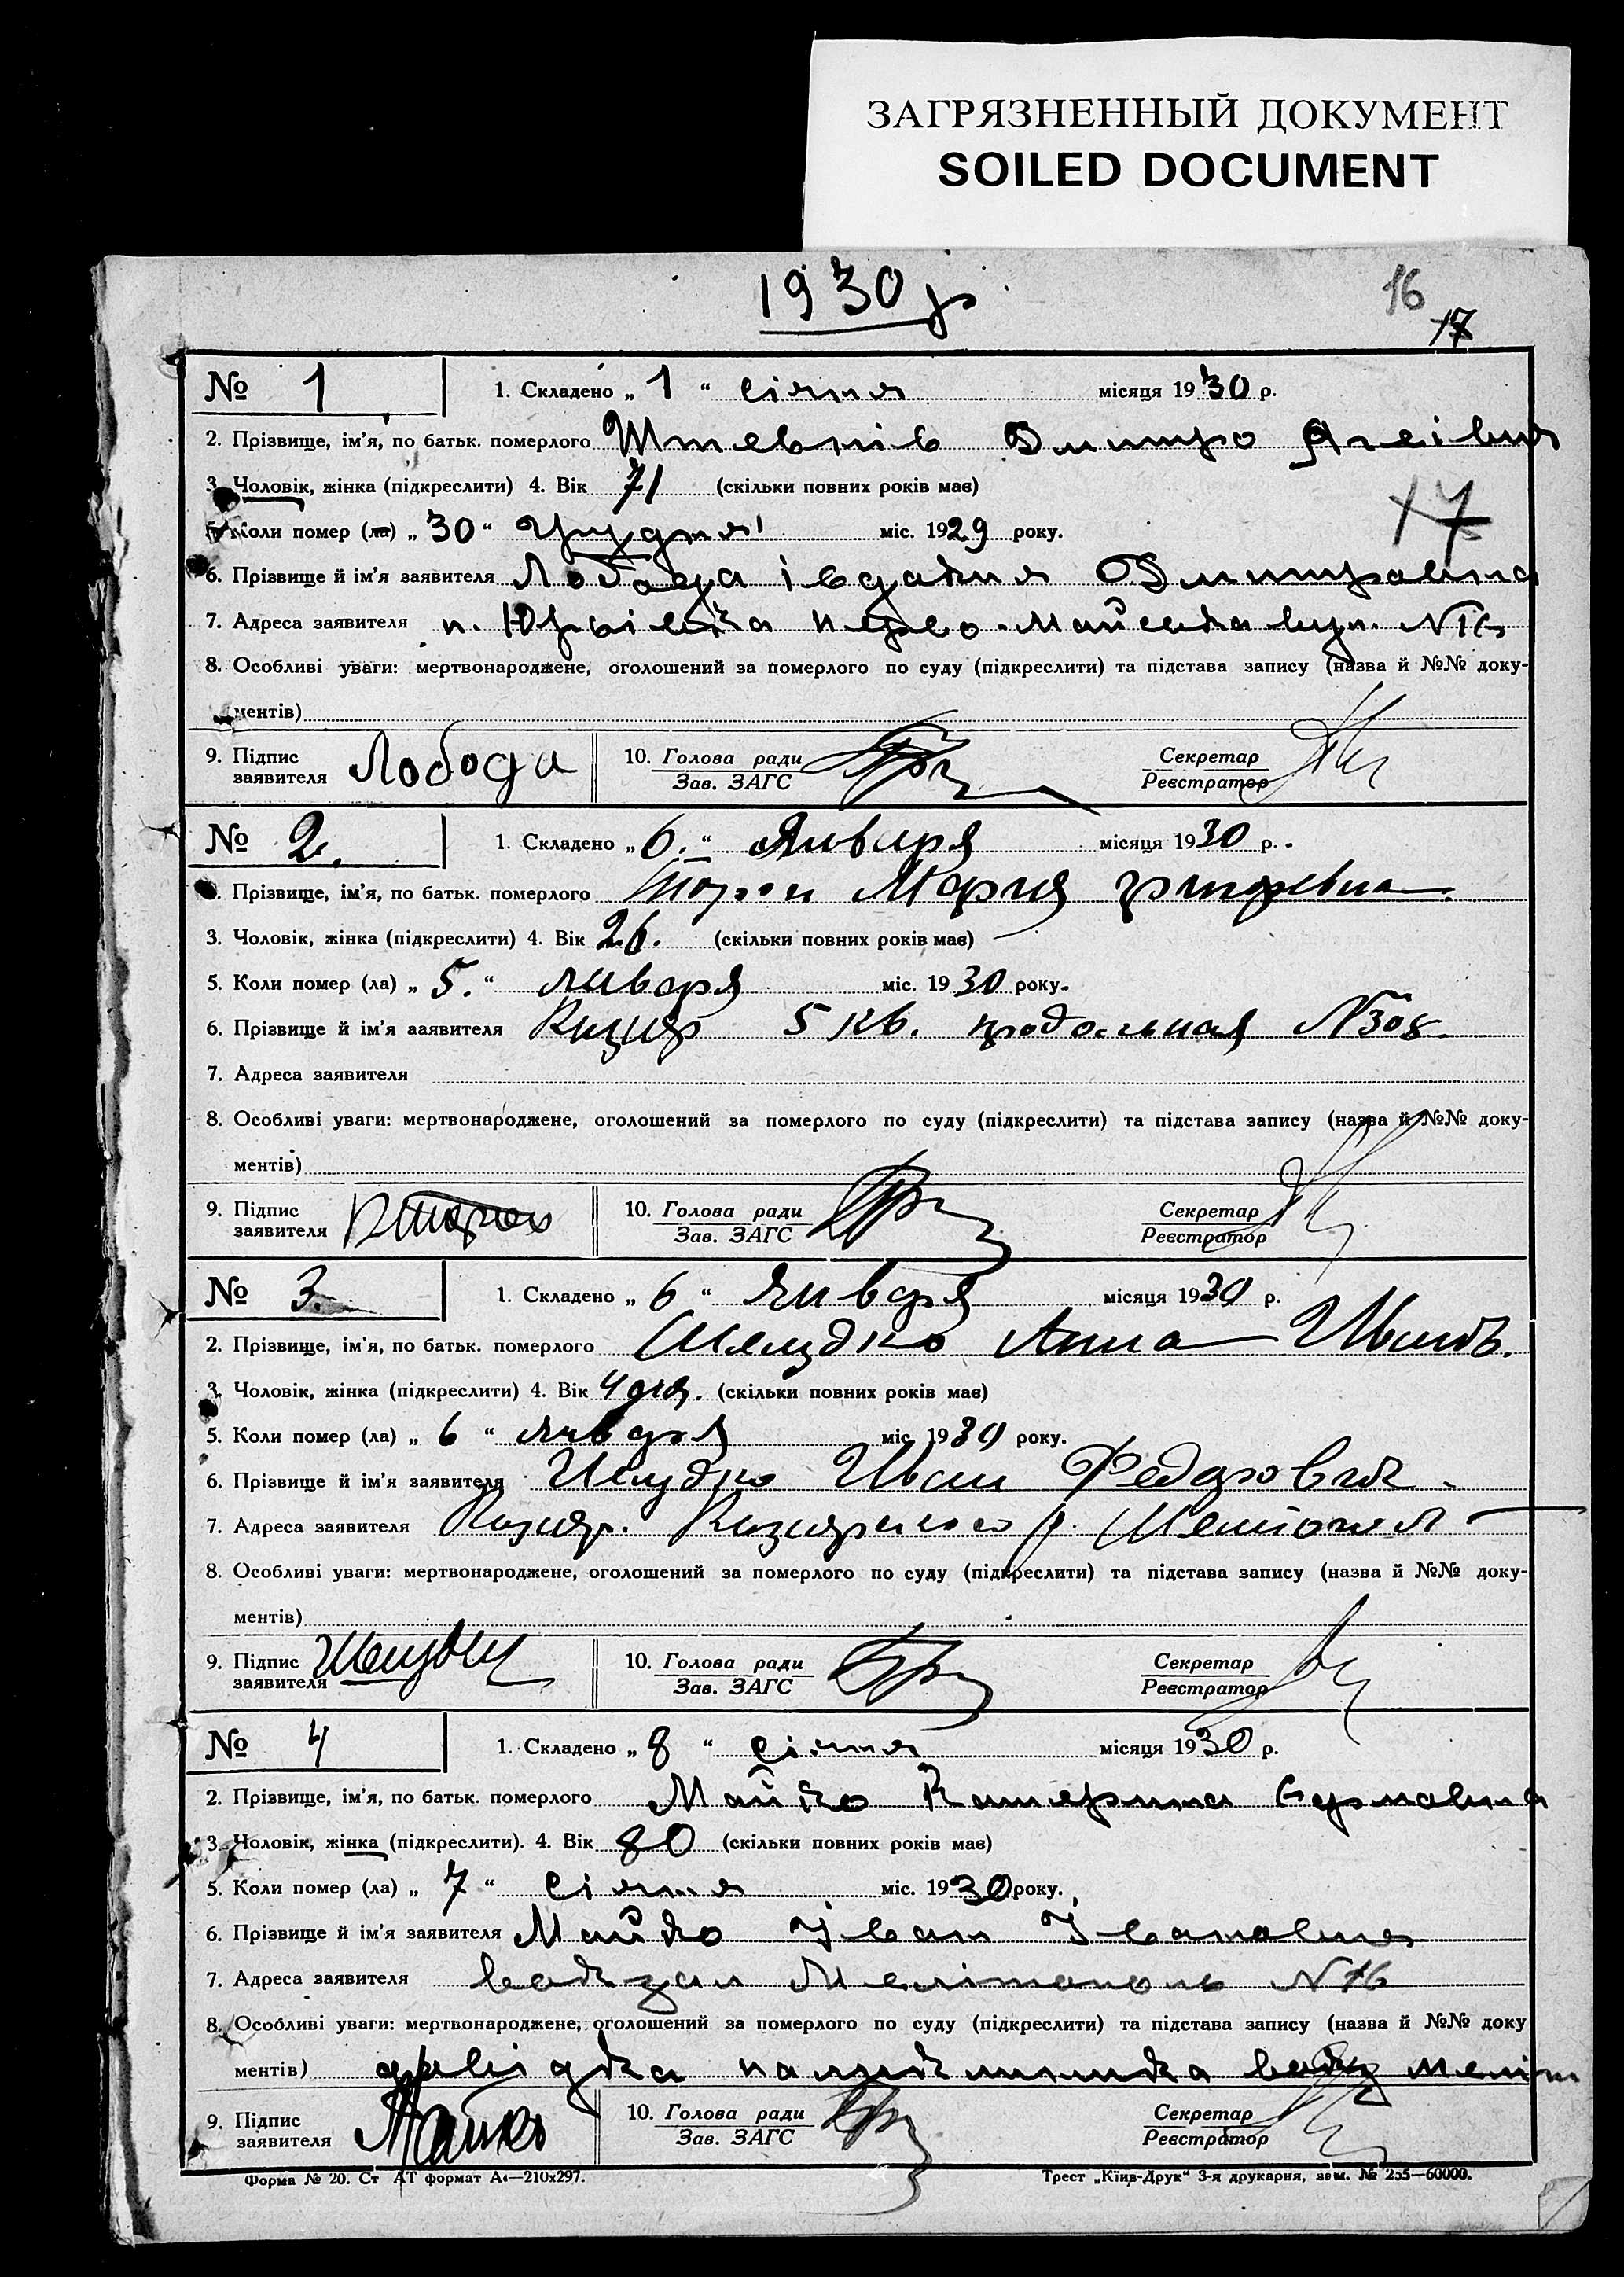 ЗАГРЯЗНЕННЫЙ ДОКУМЕНТ
SOILED DOCUMENT
1930 р
16
17
№ 1 1. Складено „ 1 “ січня місяця 1930 р.
2. Прізвище, ім'я, по батьк. померлого Дмитро
17
3. Чоловік, жінка (підкреслити) 4. Вік 71 (скільки повних років має)
5. Коли помер (ла) „ 30 “ Грудня міс. 1929 року.
6. Прізвище й ім'я заявителя Лобода Дмитровна
7. Адреса заявителя п. Юрьівка Перво-Майська вул. N 16
8. Особливі уваги: мертвонароджене, оголошений за померлого по суду (підкреслити) та підстава запису (назва й №№ доку-
ментів)
9. Підпис заявителя Лобода 10. Голова ради Зав. ЗАГС Секретар Реєстратор
№ 2. 1. Складено „ 6. “ Января місяця 1930 р.
2. Прізвище, ім'я, по батьк. померлого Мария Григорьевна
3. Чоловік, жінка (підкреслити) 4. Вік 26. (скільки повних років має)
5. Коли помер (ла) „ 5. “ января міс. 1930 року.
6. Прізвище й ім'я заявителя Кизияр 5 кв. продольная N 308
7. Адреса заявителя
8. Особливі уваги: мертвонароджене, оголошений за померлого по суду (підкреслити) та підстава запису (назва й №№ доку-
ментів)
9. Підпис заявителя 10. Голова ради Зав. ЗАГС Секретар Реєстратор
№ 3. 1. Складено „ 6 “ января місяця 1930 р.
2. Прізвище, ім'я, по батьк. померлого Шелудко Анна Иванов.
3. Чоловік, жінка (підкреслити) 4. Вік 4 дня. (скільки повних років має)
5. Коли помер (ла) „ 6 “ января міс. 1930 року.
6. Прізвище й ім'я заявителя Шелудко Иван Федорович
7. Адреса заявителя Кизияр. Кизиярского р. Мелитопол
8. Особливі уваги: мертвонароджене, оголошений за померлого по суду (підкреслити) та підстава запису (назва й №№ доку-
ментів)
9. Підпис заявителя 10. Голова ради Зав. ЗАГС Секретар Реєстратор
№ 4 1. Складено „ 8 “ січня місяця 1930 р.
2. Прізвище, ім'я, по батьк. померлого Майко Катерина
3. Чоловік, жінка (підкреслити). 4. Вік 80 (скільки повних років має)
5. Коли помер (ла) „ 7 “ січня міс. 1930 року.
6. Прізвище й ім'я заявителя Майко Іван Іванович
7. Адреса заявителя вокзал Мелітополь N 16
8. Особливі уваги: мертвонароджене, оголошений за померлого по суду (підкреслити) та підстава запису (назва й №№ доку
ментів) довідка поліклиника вокз Меліт
9. Підпис заявителя Майко 10. Голова ради Зав. ЗАГС Секретар Реєстратор
Форма № 20. Ст АТ формат А4—210х297. Трест „Київ-Друк“ 3-я друкарня, зам. № 255—60000.